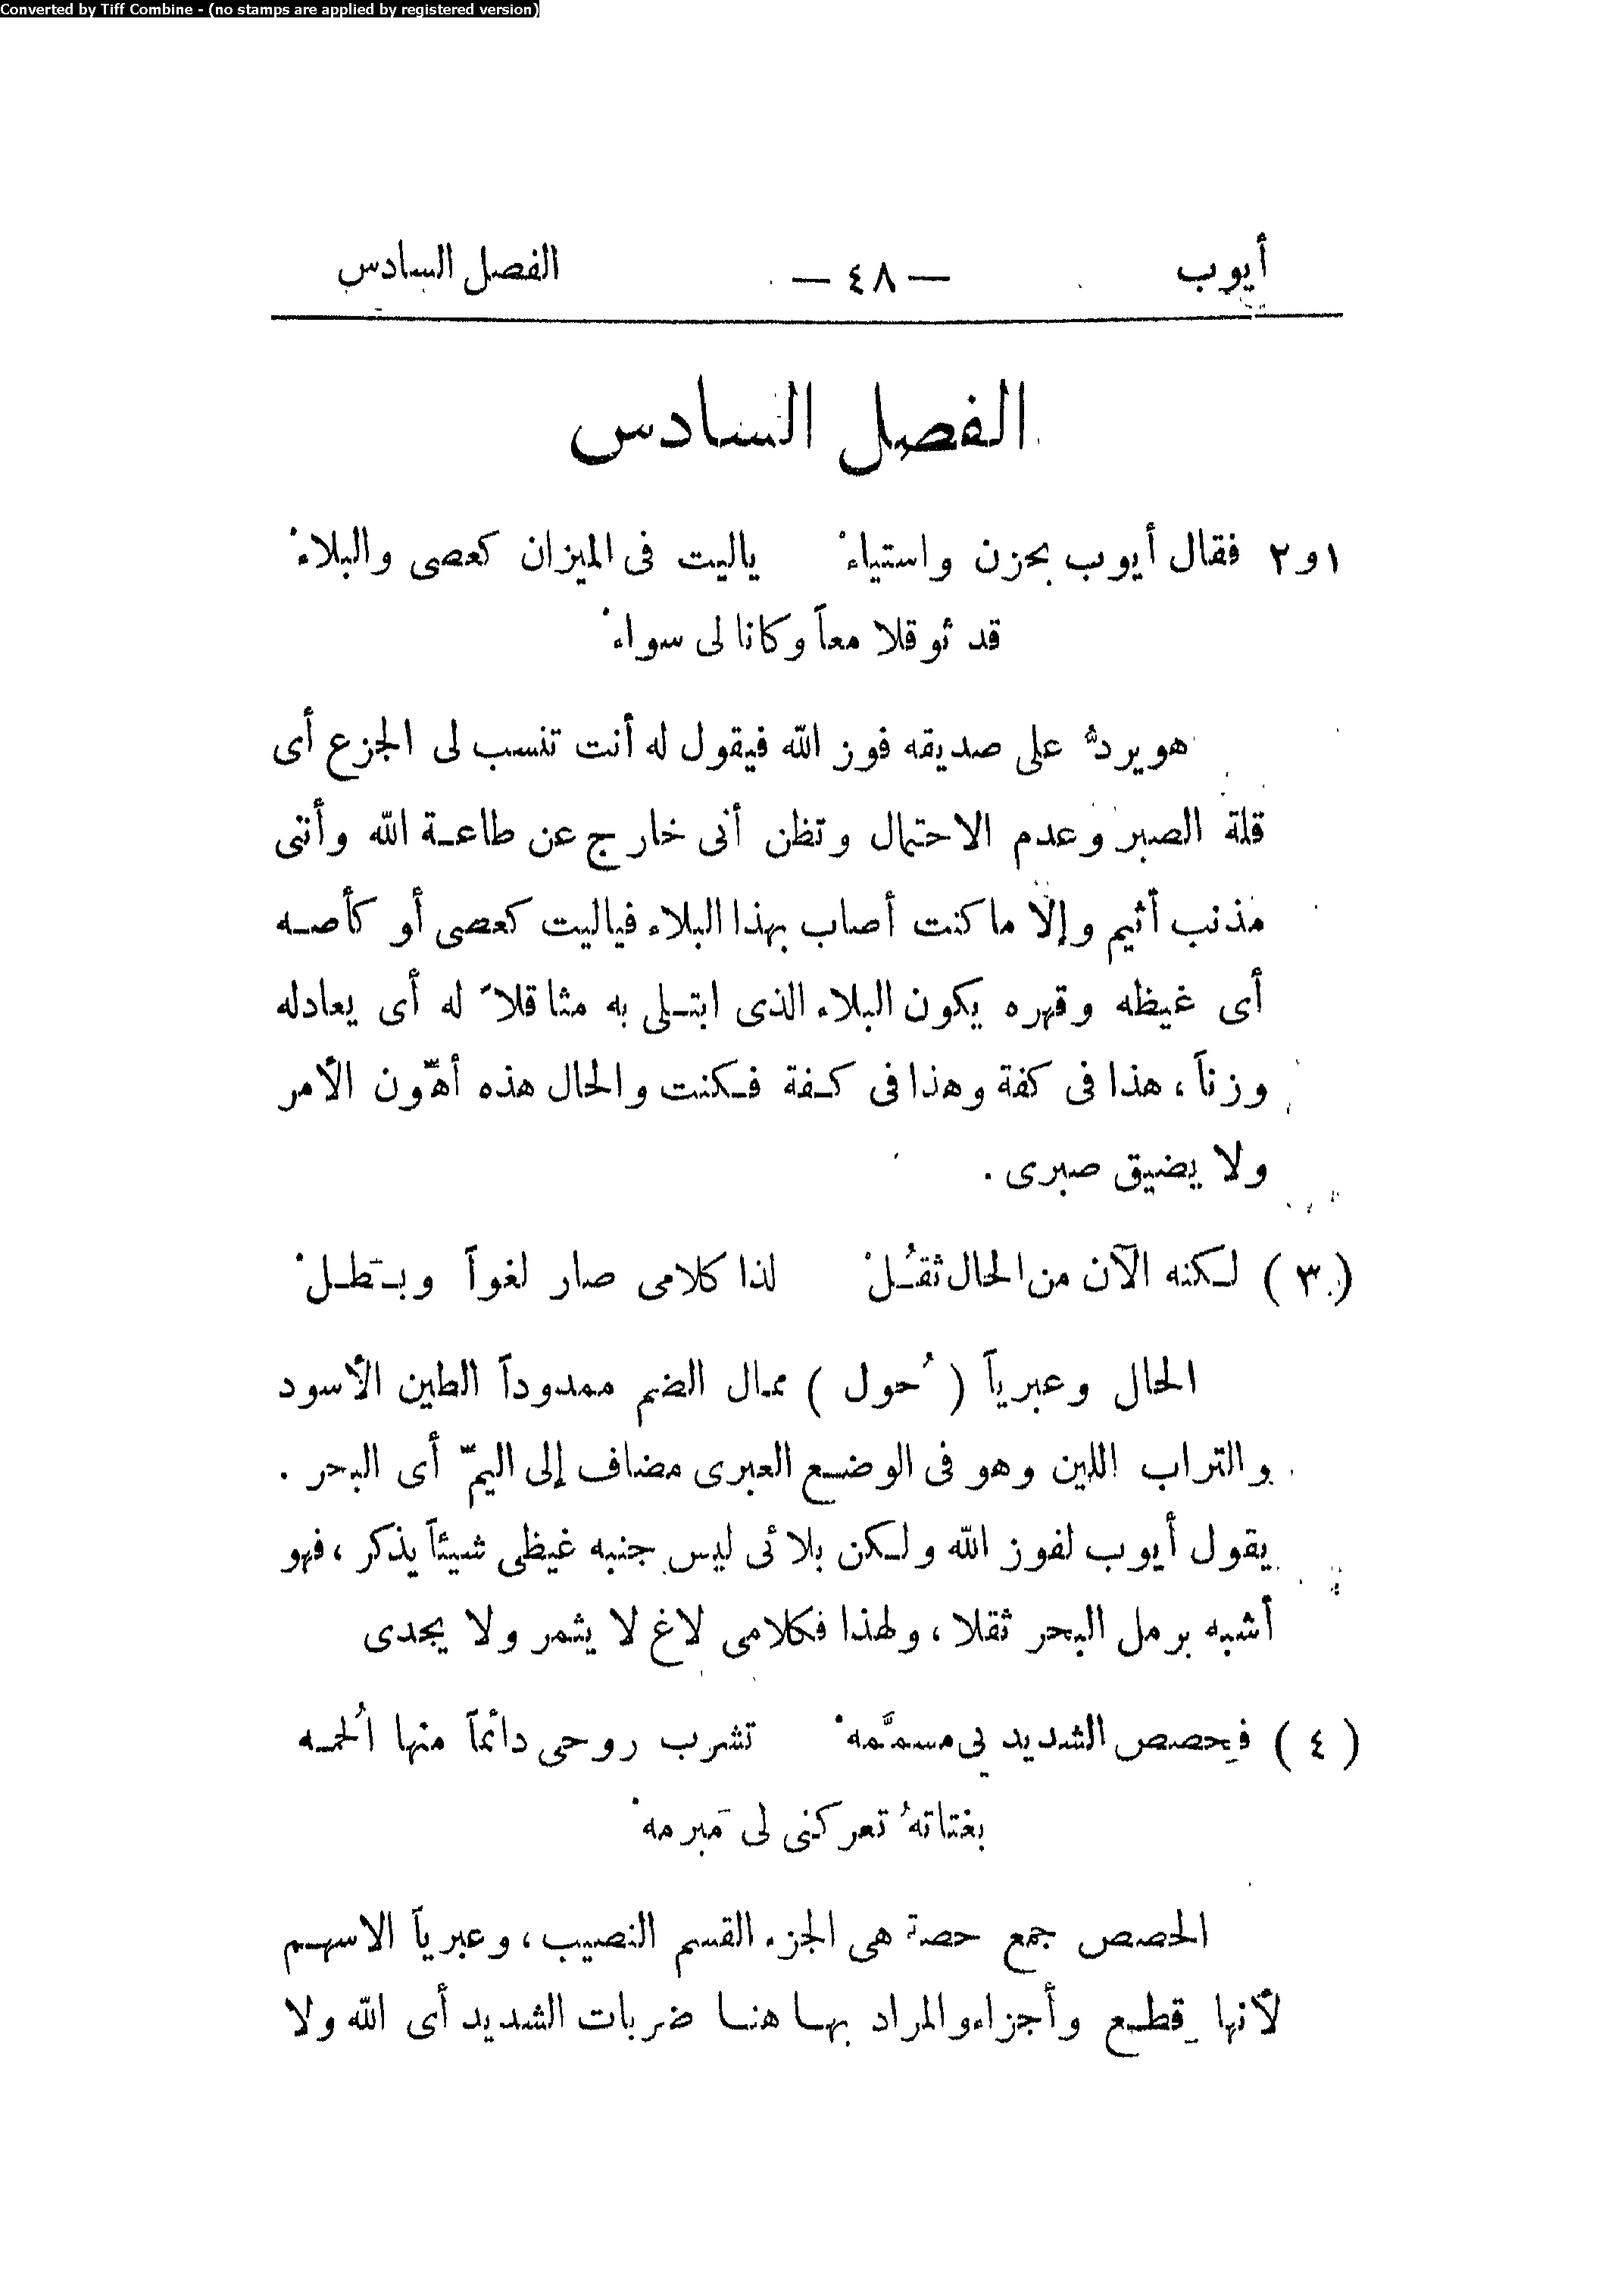 Converted by Tiff Combine - (no stamps are applied by registered version)
أيوب — ٤٨ — الفصل السادس
الفصل السادس
١ و ٢ فقال أيوب بحزن واستياءْ ياليت فى الميزان كعصى والبلاءْ
قد ثوقلا معاً وكانا لى سواءْ
هو يردّ على صديقه فوز الله فيقول له أنت تنسب لى الجزع أى
قلة الصبر وعدم الاحتمال وتظن أنى خارج عن طاعة الله وأننى
مذنب أثيم وإلاّ ما كنت أصاب بهذا البلاء فياليت كعصى أو كأصه
أى غيظه وقهره يكون البلاء الذى ابتلى به مثاقلاً له أى يعادله
وزناً، هذا فى كفة وهذا فى كفة فكنت والحال هذه أهوّن الأمر
ولا يضيق صبرى .
(٣) لكنه الآن من الحال ثقُلْ لذا كلامى صار لغواً وبَطلْ
الحال وعبرياً ( ُحول ) ممال الضم ممدوداً الطين الأسود
والتراب اللين وهو فى الوضع العبرى مضاف إلى اليمّ أى البحر .
يقول أيوب لفوز الله ولكن بلائى ليس جنبه غيظى شيئاً يذكر، فهو
أشبه برمل البحر ثقلا، ولهذا فكلامى لاغ لا يثمر ولا يجدى
(٤) فحِصص الشديد بى مسمَّمهْ تشرب روحى دائماً منها الُحمه
بغتاتهُ تعركنى لى مَبرمهْ
الحصص جمع حصة هى الجزء القسم النصيب، وعبرياً الاسهم
لأنها قِطع وأجزاء والمراد بها هنا ضربات الشديد أى الله ولا